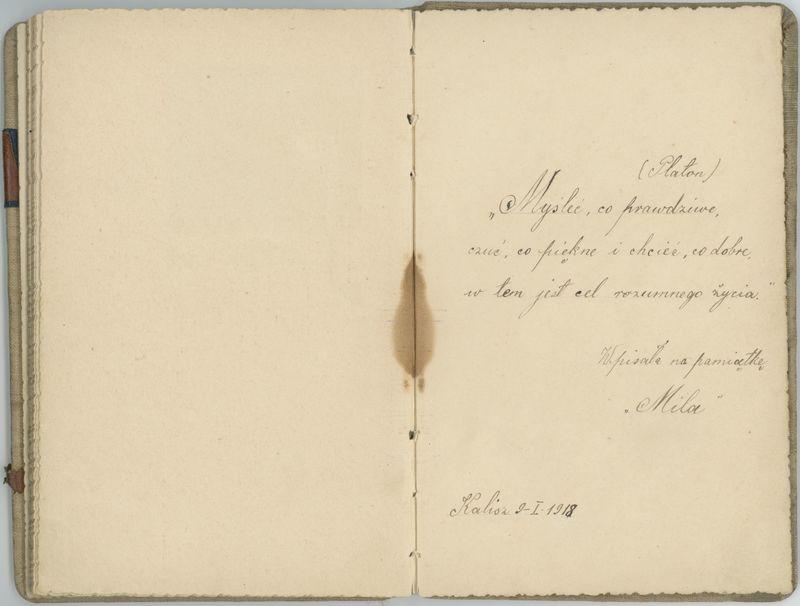 (Platon)
„Myśleć, co prawdziwe,
czuć, co piękne i chcieć, co dobre,
w tem jest cel rozumnego życia."
Wpisała na pamiątkę
„Mila"
Kalisz 9-I-1918